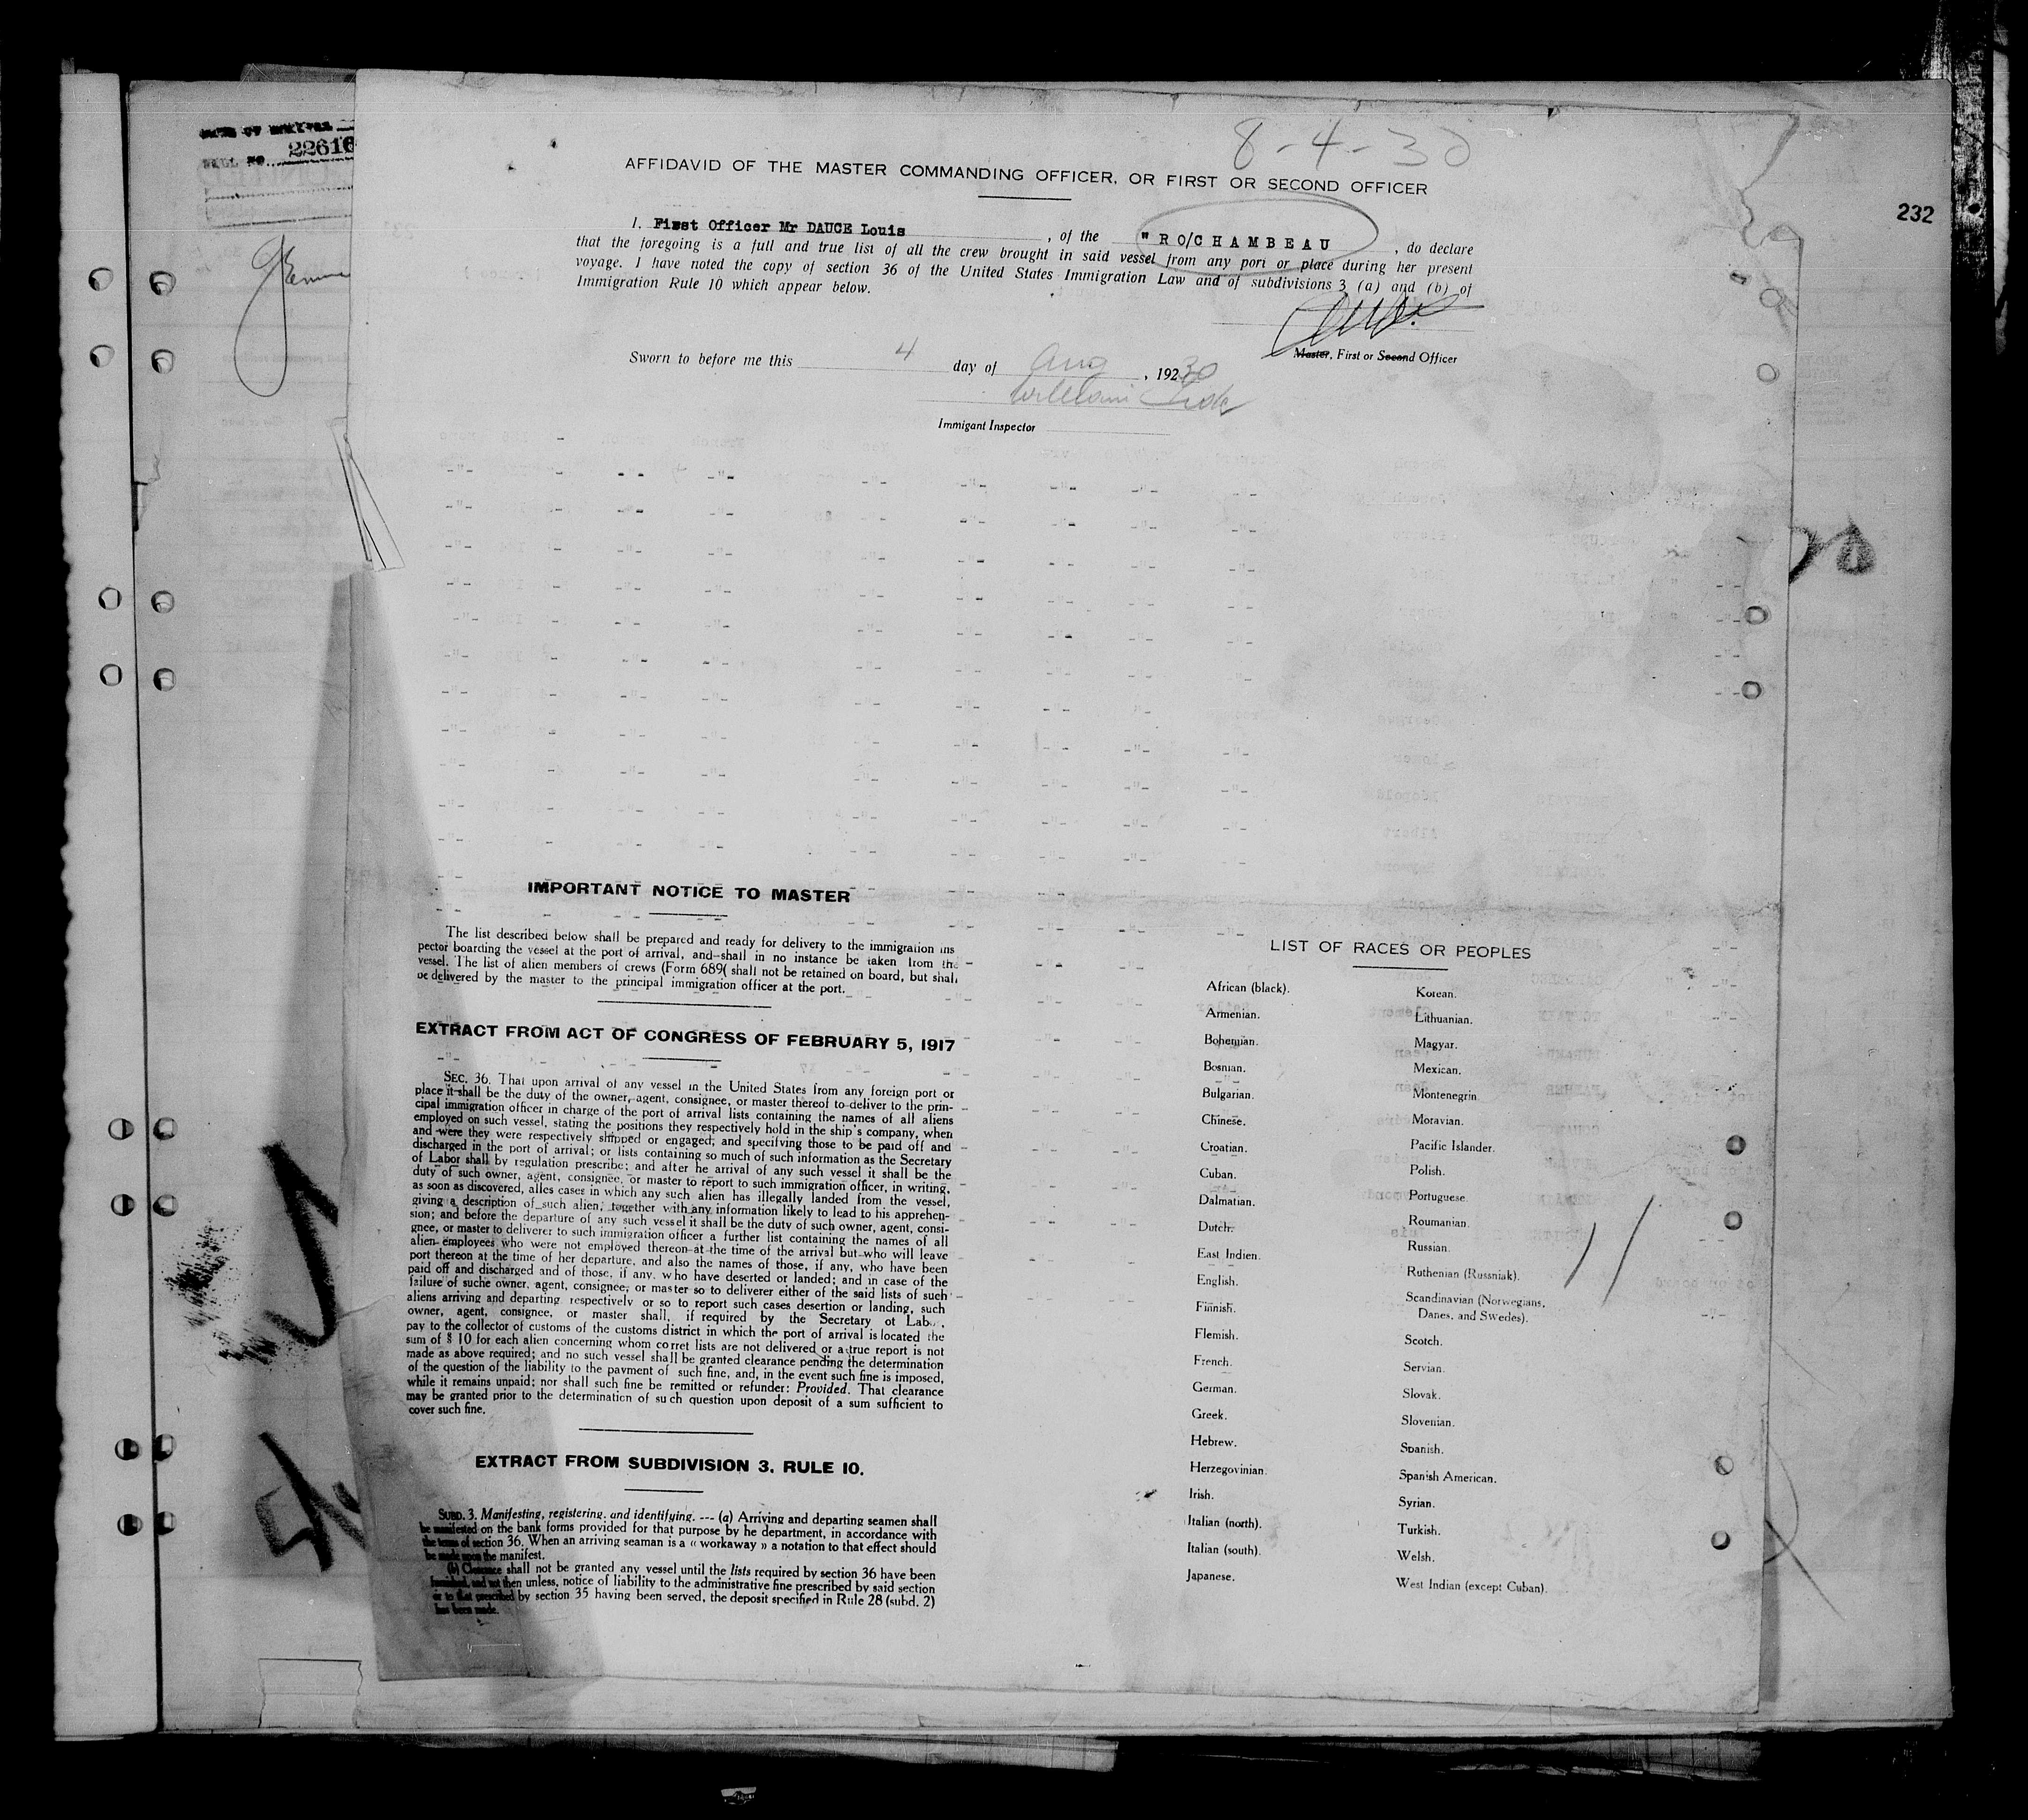 22616
232
8-4-30
AFFIDAVID OF THE MASTER COMMANDING OFFICER, OR FIRST OR SECOND OFFICER
I. First Officer Mr DAUCE Louis , of the " RO/CHAMBEAU , do declare
that the foregoing is a full and true list of all the crew brought in said vessel from any pori or place during her present
voyage. I have noted the copy of section 36 of the United States Immigration Law and of subdivisions 3 (a) and (b) of
Immigration Rule 10 which appear below.
Master, First or Second Officer
Sworn to before me this 4 day of Aug , 19230
William
Immigant Inspector
IMPORTANT NOTICE TO MASTER
The list described below shall be prepared and ready for delivery to the immigration ins
pector boarding the vessel at the port of arrival, and shall in no instance be taken from the
vessel. The list of alien members of crews (Form 689( shall not be retained on board, but shall
be delivered by the master to the principal immigration officer at the port.
EXTRACT FROM ACT OF CONGRESS OF FEBRUARY 5, 1917
SEC. 36. That upon arrival of any vessel in the United States from any foreign port or
place it shall be the duty of the owner, agent, consignee, or master thereof to deliver to the prin-
cipal immigration officer in charge of the port of arrival lists containing the names of all aliens
employed on such vessel, stating the positions they respectively hold in the ship's company, when
and were they were respectively shipped or engaged; and specifying those to be paid off and
discharged in the port of arrival; or lists containing so much of such information as the Secretary
of Labor shall by regulation prescribe; and after he arrival of any such vessel it shall be the
duty of such owner, agent, consignee, or master to report to such immigration officer, in writing,
as soon as discovered, alles cases in which any such alien has illegally landed from the vessel,
giving a description of such alien, together with any information likely to lead to his apprehen-
sion; and before the departure of any such vessel it shall be the duty of such owner, agent, consi-
gnee, or master to deliverer to such immigration officer a further list containing the names of all
alien employees who were not employed thereon at the time of the arrival but who will leave
port thereon at the time of her departure, and also the names of those, if any, who have been
paid off and discharged and of those, if any, who have deserted or landed; and in case of the
failure of suche owner, agent, consignee, or master so to deliverer either of the said lists of such
aliens arriving and departing respectively or so to report such cases desertion or landing, such
owner, agent, consignee, or master shall, if required by the Secretary ot Labor,
pay to the collector of customs of the customs district in which the port of arrival is located the
sum of $ 10 for each alien concerning whom corret lists are not delivered or a true report is not
made as above required; and no such vessel shall be granted clearance pending the determination
of the question of the liability to the payment of such fine, and, in the event such fine is imposed,
while it remains unpaid; nor shall such fine be remitted or refunder: Provided. That clearance
may be granted prior to the determination of such question upon deposit of a sum sufficient to
cover such fine.
EXTRACT FROM SUBDIVISION 3, RULE 10.
SUBD. 3. Manifesting, registering, and identifying. --- (a) Arriving and departing seamen shall
be manifested on the bank forms provided for that purpose by he department, in accordance with
the terms of section 36. When an arriving seaman is a « workaway » a notation to that effect should
be made upon the manifest.
(b) Clearance shall not be granted any vessel until the lists required by section 36 have been
furnished, and not then unless, notice of liability to the administrative fine prescribed by said section
or to that prescribed by section 35 having been served, the deposit specified in Rule 28 (subd. 2)
has been made.
LIST OF RACES OR PEOPLES
African (black).
Armenian.
Bohemian.
Bosnian.
Bulgarian.
Chinese.
Croatian.
Cuban.
Dalmatian.
Dutch.
East Indien.
English.
Finnish.
Flemish.
French.
German.
Greek.
Hebrew.
Herzegovinian.
Irish.
Italian (north).
Italian (south).
Japanese.
Korean.
Lithuanian.
Magyar.
Mexican.
Montenegrin
Moravian.
Pacific Islander.
Polish.
Portuguese.
Roumanian.
Russian.
Ruthenian (Russniak).
Scandinavian (Norwegians,
Danes, and Swedes).
Scotch.
Servian.
Slovak.
Slovenian.
Spanish.
Spanish American.
Syrian.
Turkish.
Welsh.
West Indian (except Cuban).